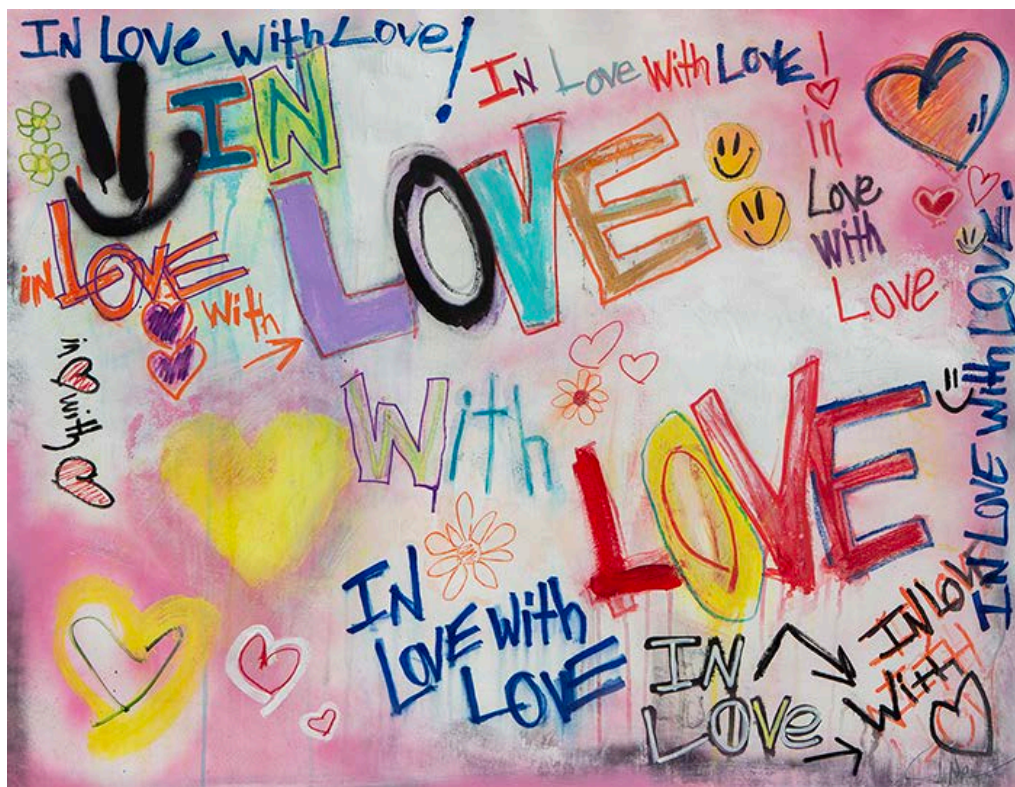 IN LOVE With LOVE!
IN LOVE With LOVE!
IN
LOVE
With
LOVE
in LOVE
With
in
with
in
Love
with
Love
IN LOVE With LOVE.
IN
LOVE with
LOVE
IN
LOVE
IN LOVE
With